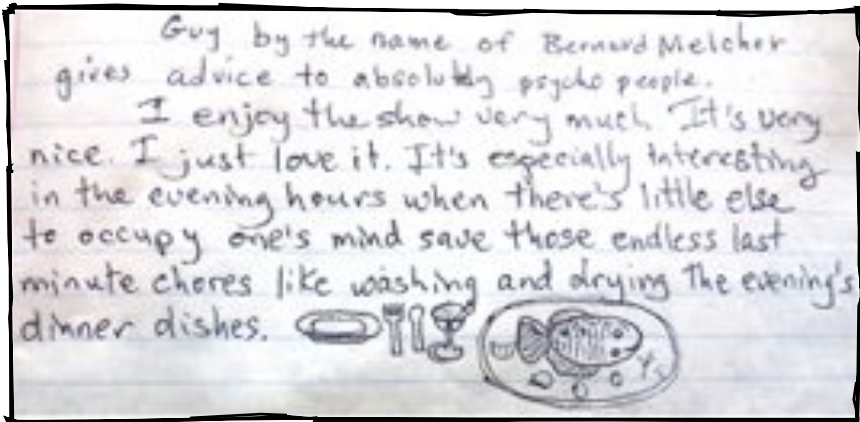 Guy by the name of Bernard Melcher
gives advice to absolutely psycho people.
I enjoy the show very much. It's very
nice. I just love it. It's especially interesting
in the evening hours when there's little else
to occupy one's mind save those endless last
minute chores like washing and drying the evening's
dinner dishes.